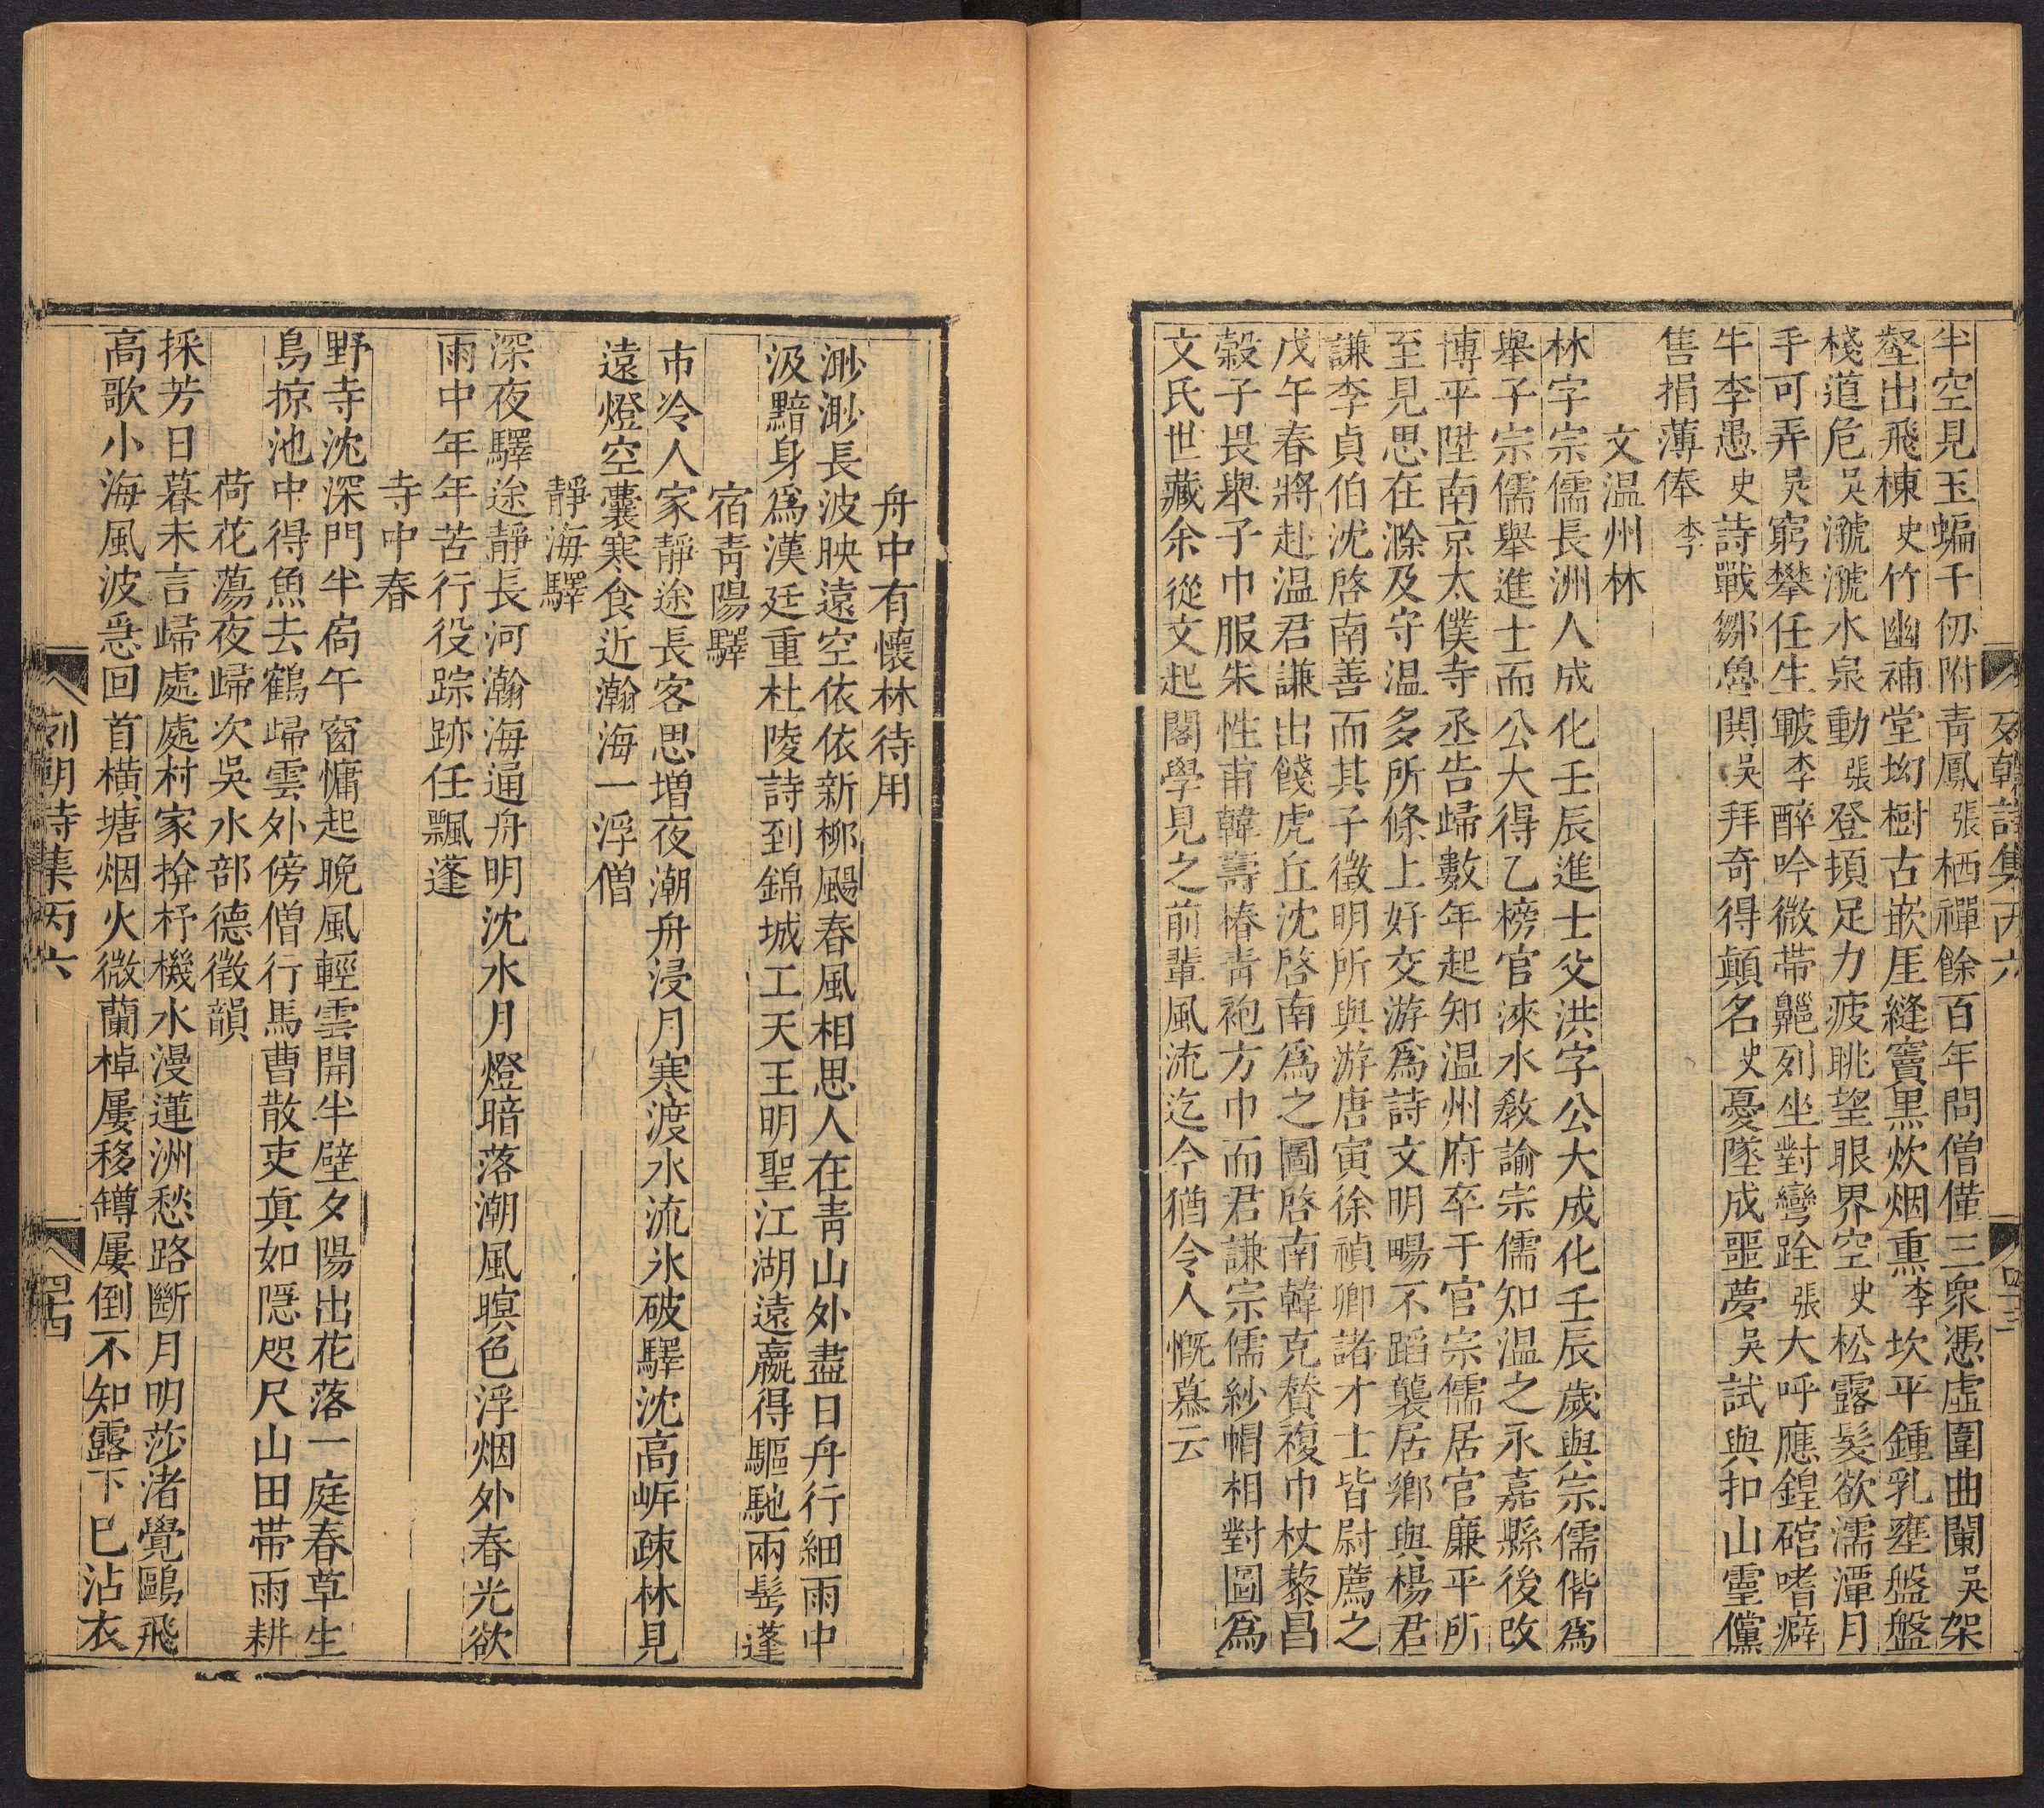 列朝詩集丙六 四十三
半空見玉蝙千仞附靑鳳張栖禪餘百年問僧僅三衆憑虛圍曲闌吳架
壑出飛棟史竹幽補堂坳樹古嵌厓縫竇黑炊烟熏李坎平鍾乳壅盤盤
棧道危吳濺濺水泉動張登頂足力疲眺望眼界空史松露髮欲濡潭月
手可弄吳窮攀任生皸李醉吟微帶齆列坐對彎跧張大呼應鍠硿嗜癖
牛李愚史詩戰鄒魯鬨吳拜奇得顛名史憂墜成噩夢吳試與扣山靈儻
售捐薄俸李
文温州林
林字宗儒長洲人成化壬辰進士父洪字公大成化壬辰歲與宗儒偕爲
舉子宗儒舉進士而公大得乙榜官淶水敎諭宗儒知温之永嘉縣後改
博平陞南京太僕寺丞告歸數年起知温州府卒于官宗儒居官廉平所
至見思在滁及守温多所條上好交游爲詩文明暢不蹈襲居鄉與楊君
謙李貞伯沈啓南善而其子徵明所與游唐寅徐禎卿諸才士皆尉薦之
戊午春將赴温君謙出餞虎丘沈啓南爲之圖啓南韓克贊複巾杖藜昌
穀子畏舉子巾服朱性甫韓壽椿靑袍方巾而君謙宗儒紗帽相對圖爲
文氏世藏余從文起閣學見之前輩風流迄今猶令人慨慕云
舟中有懷林待用
渺渺長波映遠空依依新柳颺春風相思人在靑山外盡日舟行細雨中
汲黯身爲漢廷重杜陵詩到錦城工天王明聖江湖遠嬴得驅馳兩髩蓬
宿靑陽驛
市冷人家靜途長客思增夜潮舟浸月寒渡水流氷破驛沈高岸疎林見
遠燈空囊寒食近瀚海一浮僧
靜海驛
深夜驛途靜長河瀚海通舟明沈水月燈暗落潮風暝色浮烟外春光欲
雨中年年苦行役踪跡任飄蓬
寺中春
野寺沈深門半扃午窗慵起晚風輕雲開半壁夕陽出花落一庭春草生
鳥掠池中得魚去鶴歸雲外傍僧行馬曹散吏眞如隱咫尺山田帶雨耕
荷花蕩夜歸次吳水部德徵韻
採芳日暮未言歸處處村家搇杼機水漫蓮洲愁路斷月明莎渚覺鷗飛
高歌小海風波惡回首橫塘烟火微蘭棹屢移罇屢倒不知露下已沾衣
列朝詩集丙六 四十四